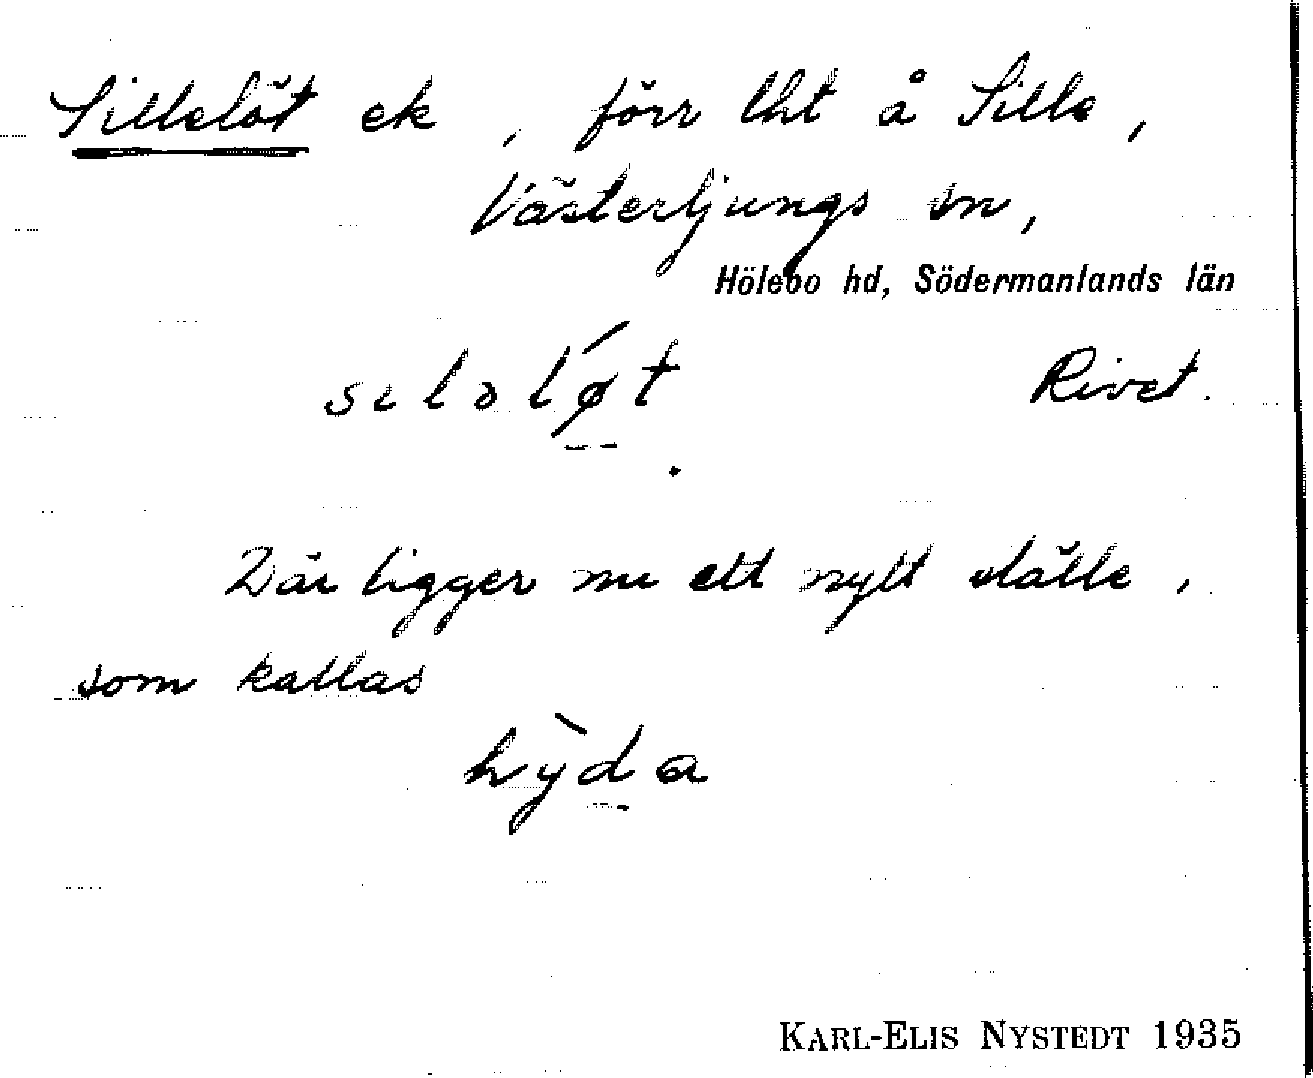 Sillelöt ek , förr lht å Sille,
Västerljungs sn,
Hölebo hd, Södermanlands län
sıləløt́ Rivet.
Där ligger nu ett nytt ställe,
som kallas
hỳda
KARL-ELIS NYSTEDT 1935